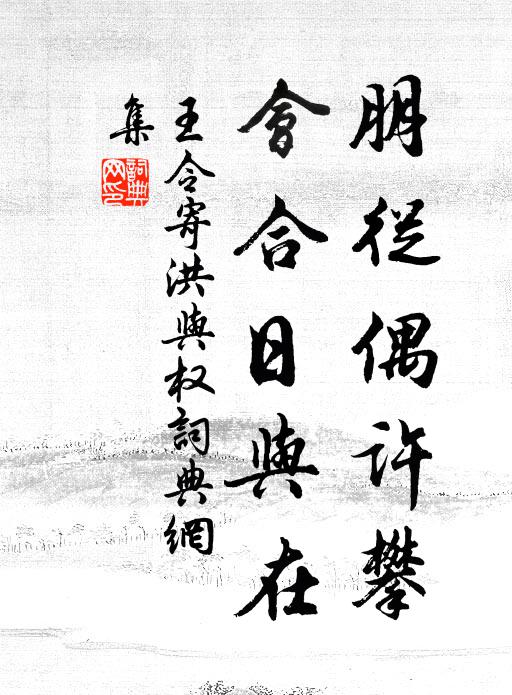 朋從偶許攀
會合日與在
王令寄洪與权詞典網
集
詞典網印